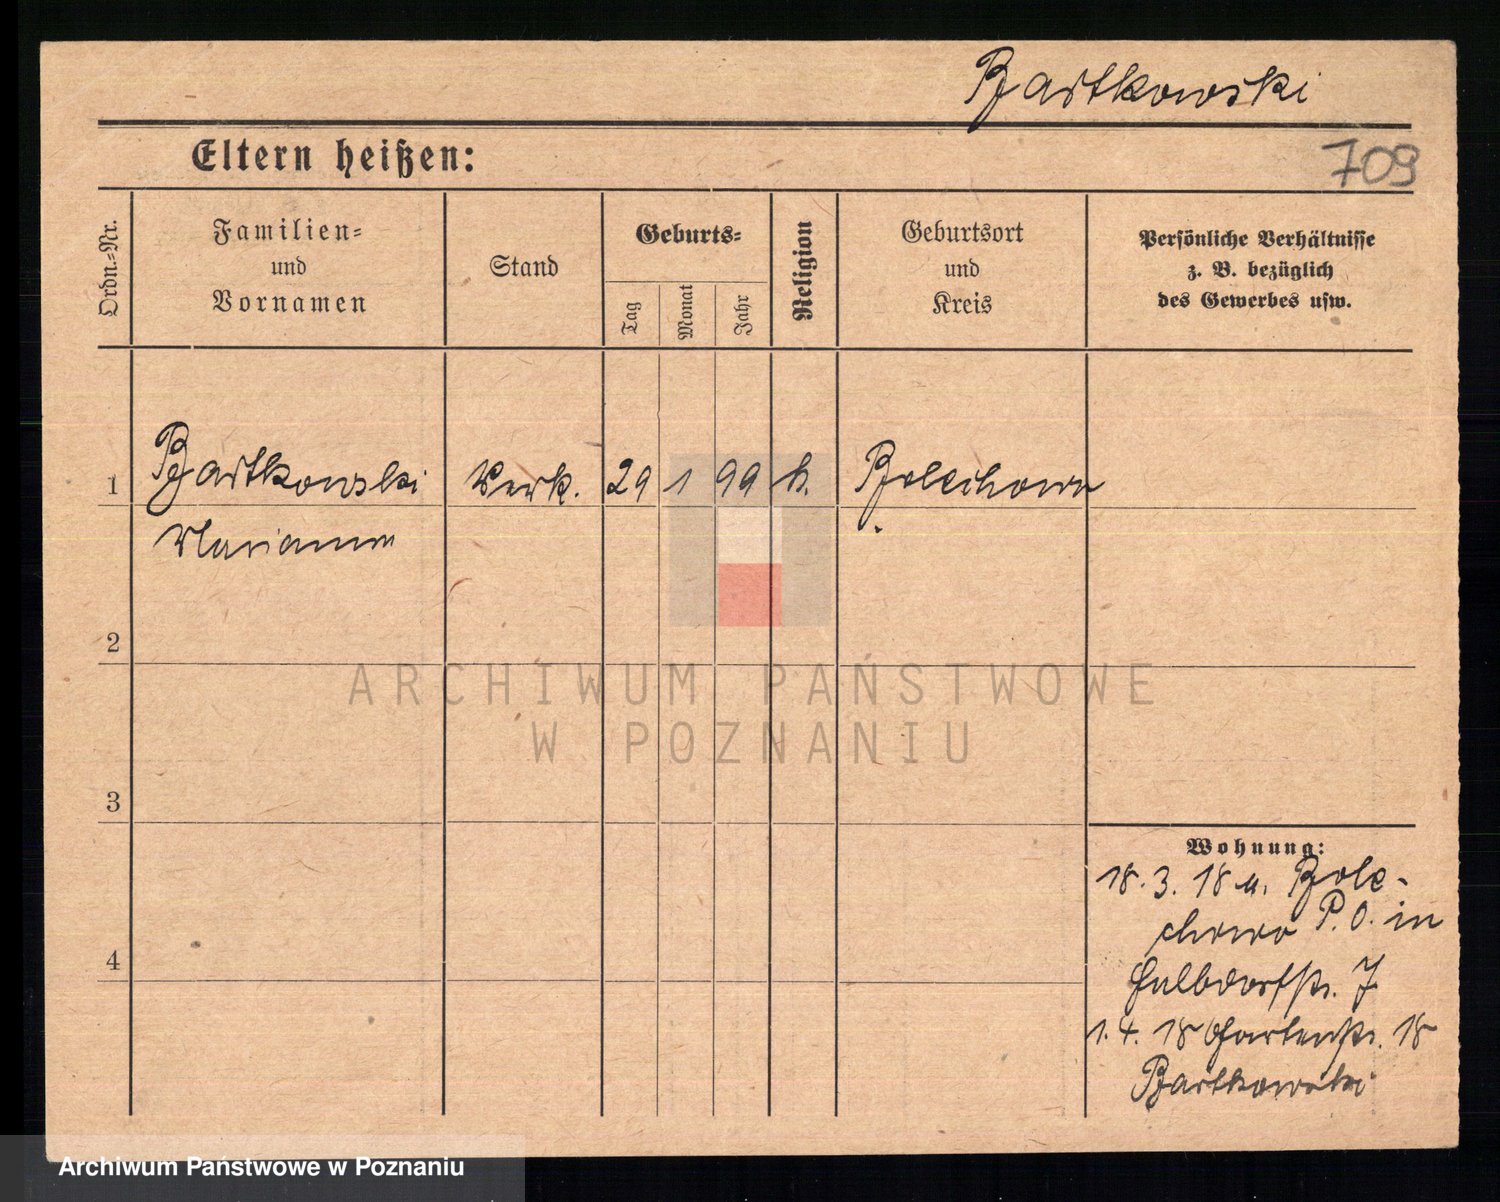 Bartkowski
Eltern heißen:
709
Ordn.-Nr.
Familien-
und
Vornamen
Stand
Geburts-
Tag
Monat
Jahr
Religion
Geburtsort
und
Kreis
Persönliche Verhältnisse
z. B. bezüglich
des Gewerbes usw.
1 Bartkowski Verk. 29 1 99 k. Bolechowo
Marianna
2
ARCHIWUM PAŃSTWOWE
W POZNANIU
3
Wohnung:
18. 3. 18 u. Bole-
chowo P. O. in
4
Halbdorfstr. 7
1. 4. 18 Gartenstr. 18
Bartkowski
Archiwum Państwowe w Poznaniu